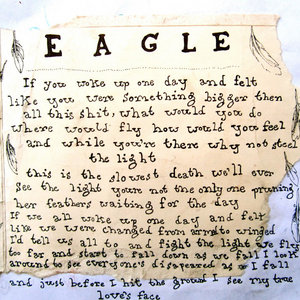 EAGLE
If you woke up one day and felt
like you were something bigger then
all this shit, what would you do
where would fly how would you feel
and while you're there why not steel
the light
this is the slowest death we'll ever
see the light youre not the only one pruning
her feathers waiting for the day
If we all woke up one day and felt
like we were changed from armd to winged
I'd tell us all to and fight the light we fly
too far and start to fall down as we fall I look
around to see everyone's disapeared as I fall
and just before I hit the ground I see my true
love's face